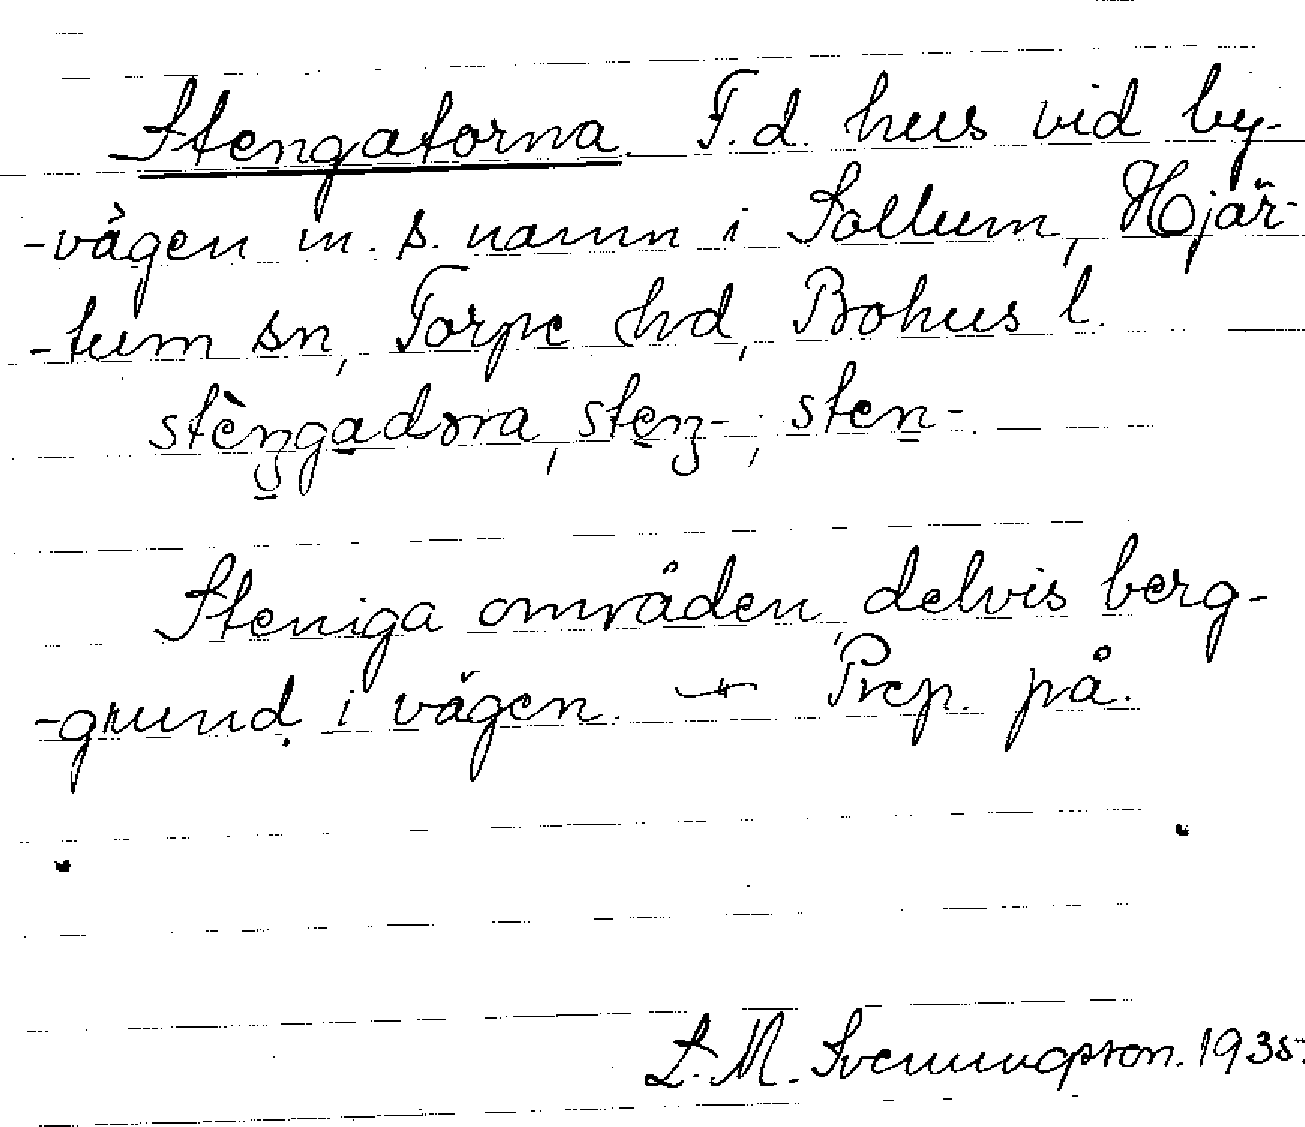 Stengatorna. F.d. hus vid by-
-vägen m. s. namn i Sollum, Hjär-
-tum sn, Torpe hd, Bohus l.
stèŋgadɔrna, steŋ-; sten-.
Steniga områden, delvis berg-
-grund i vägen. — Prep. på.
L. M. Svenungsson. 1935.